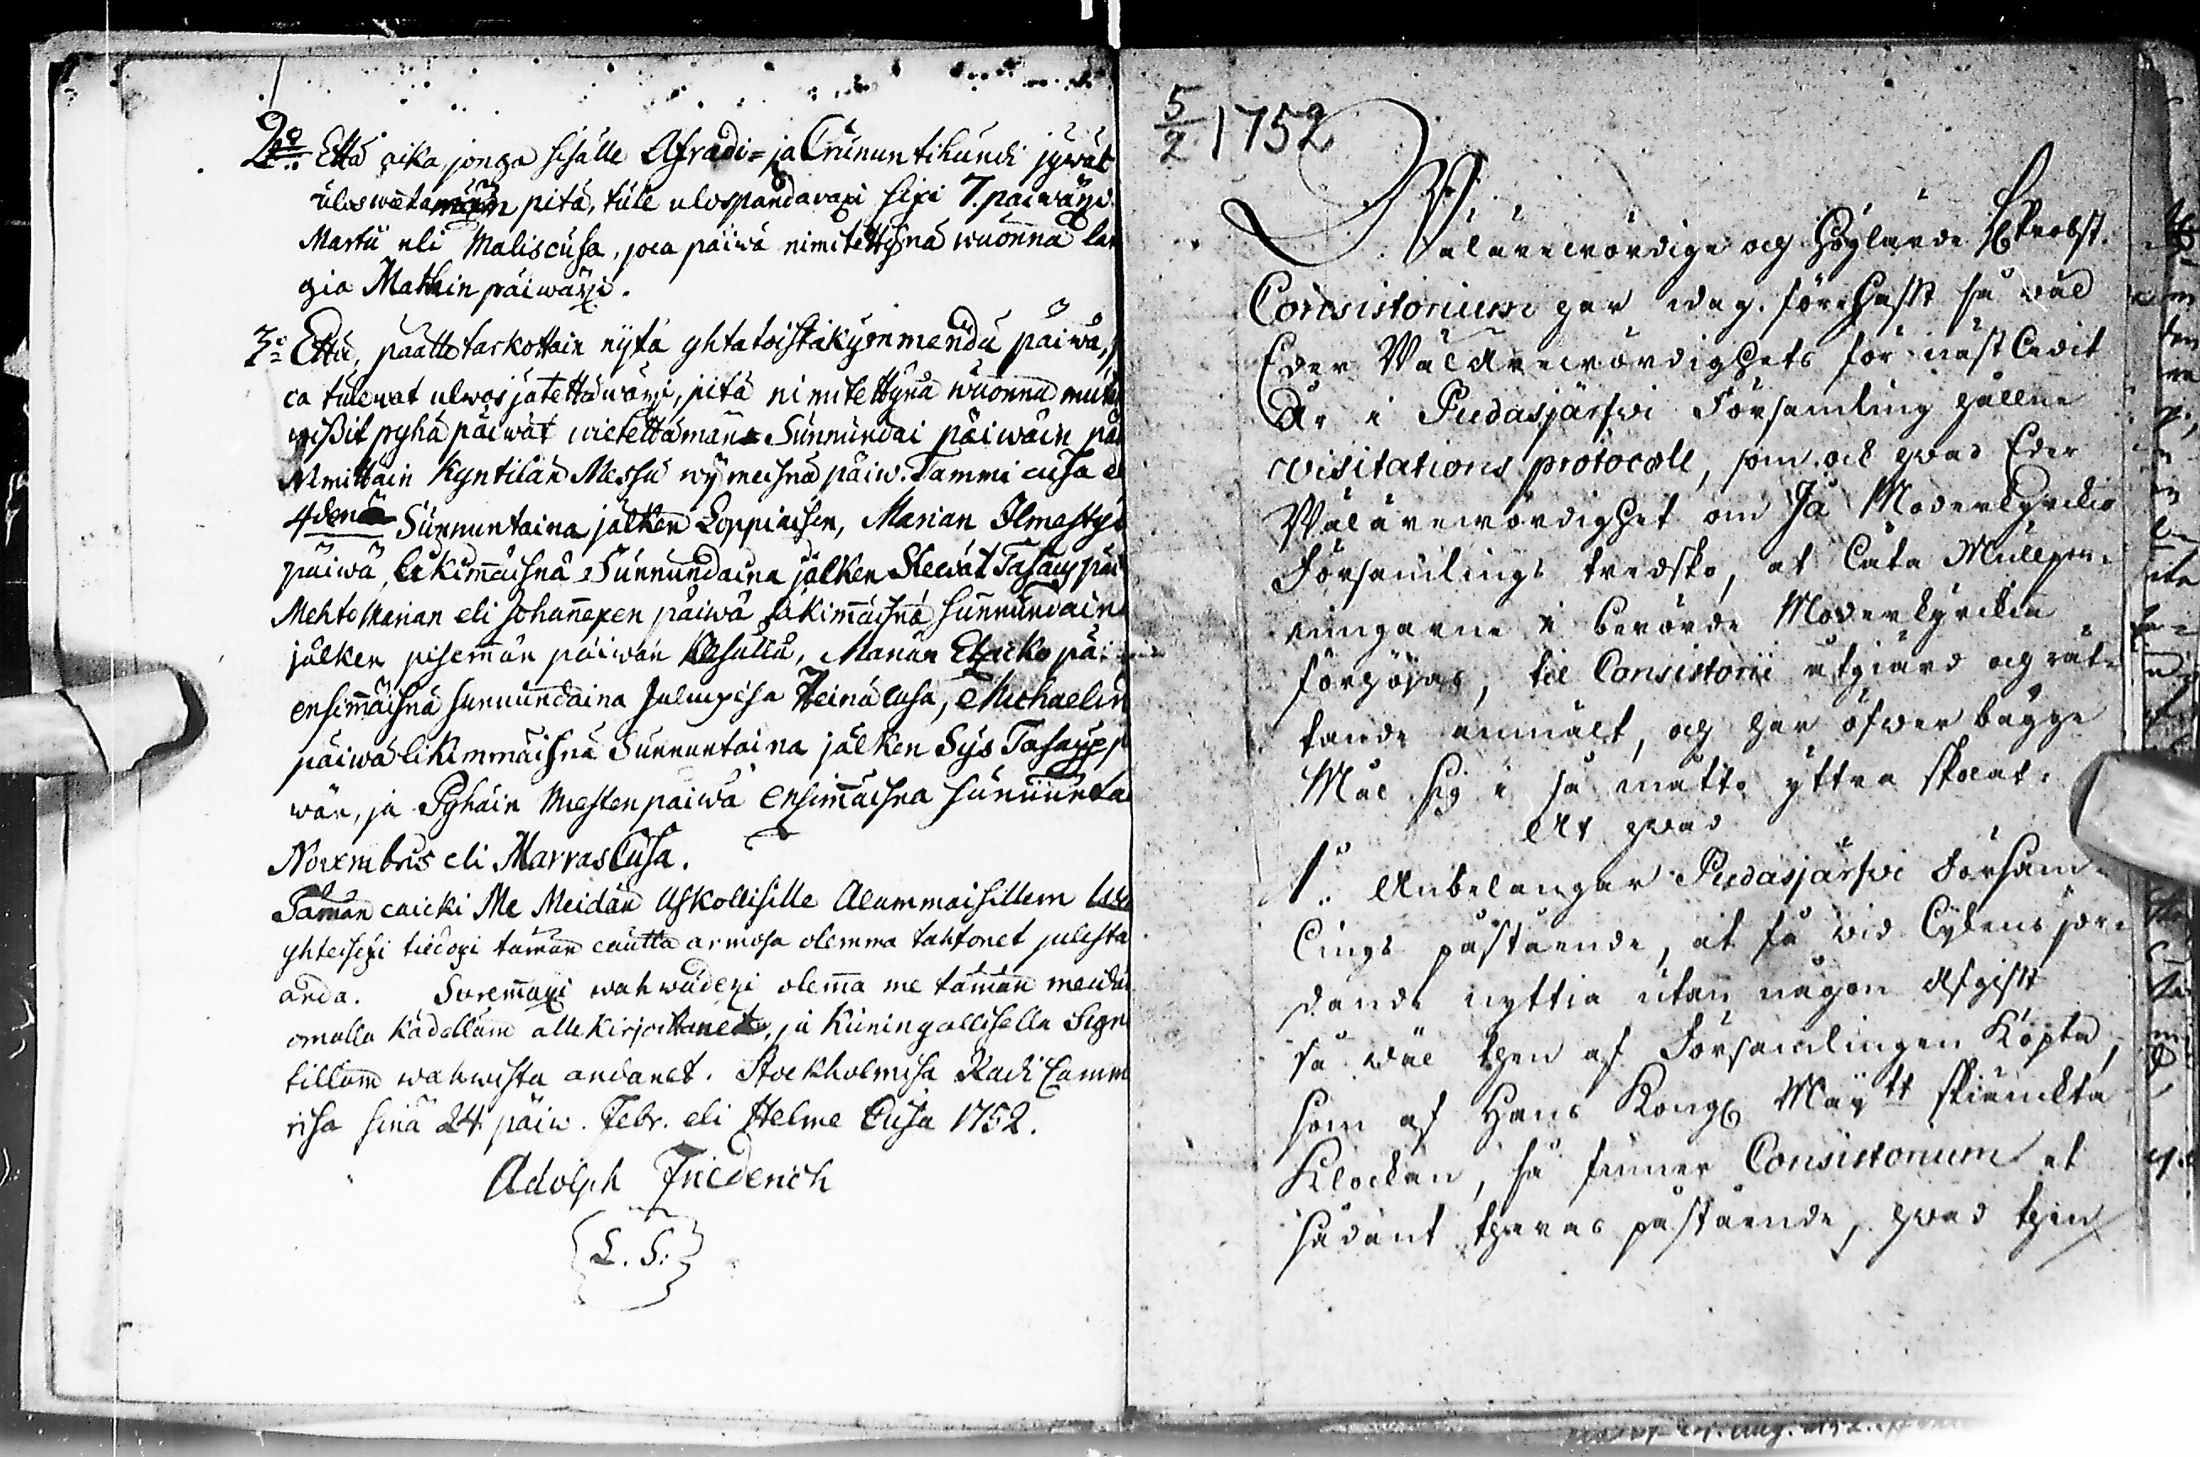 2do: Että aika, jonga sisälle Afradi- ja Crunun tihundi jywät
ulos wetämän pitä, tule ulospandavaxi sixi 7. päiwäxi
Martii eli Maliscusa, joca päiwä nimitettynä wuonna lan
gia Mathin päiwäxi.
3o Että, päälle tarkottain nyitä yhtätoistakymmendä päiwä, j
ca tulewat ulwos jätettäwäxi, pitä nimitettynä wuonna mut
wissit pyhä päiwät wietettämän Sunnundai päiwäin pä
Nimittäin Kyntilän Messu wijmeisnä päiw. Tammi cusa e
4denä Sunnuntaina jälken Loppiaisen, Marian Ilmestys
päiwä, likimmäisnä Sunnundaina jälken Kewät Tasaus päi
Mehto Marian eli Johannexen päiwä likimmäisnä sunnundaina
jälken pisemmän päiwän Kesällä, Marian Etzicko päi
ensimmäisnä sunnundaina Juliuxesa Heinä cusa, Michaelin
päiwä likimmäisnä Sunnuntaina jälken Sys Tasaus p
wän, ja Pyhäin Miesten päiwä ensimmäisnä sunnunta
Novembris eli Marras Cusa.
Tämän caicki Me Meidän Uskollisille Alammaisillem
yhteisexi tiedoxi tämän cautta armosa olemma tahtonet julista
anda. Suremmaxi wahwudexi olemma me tämän meidän
omalla kädelläm alle kirjoittanet, ja Kuningallisella Sign
tilläm wahwista andanet. Stockholmisa Radi Camm
risa sinä 24 päiw. Febr. eli Helme Cusa 1752.
Adolph Friederich
L. S.
5/2 1752
Wälärewördige och Höglärde H Probst.
Consistorium har idag förehafft så wäl
Eder Wälärewördighets för näst ledit
år i Pudasjärfwi Församling hållne
visitations protocoll, som ock hwad Eder
Wälärewördighet om Jå Moderkyrckio
Församlings tredsko, at låta
i berörde Moderkyrckia
förhöjas, til Consistorii utgiärd och rät-
tande anmält, och har öfwer bägge
Mål sig i så måtto yttra skolat.
At hwad
1o. Anbelangar Pudasjärfwi Försam-
lings påstående, at få wid Lijkens jor-
dande nyttia utan någon Afgifft
så wäl then af Församlingen Köpta,
som af Hans Kongl Maytt skiänckta
Klockan, så finner Consistorium et
sådant theras påstående, hwad then